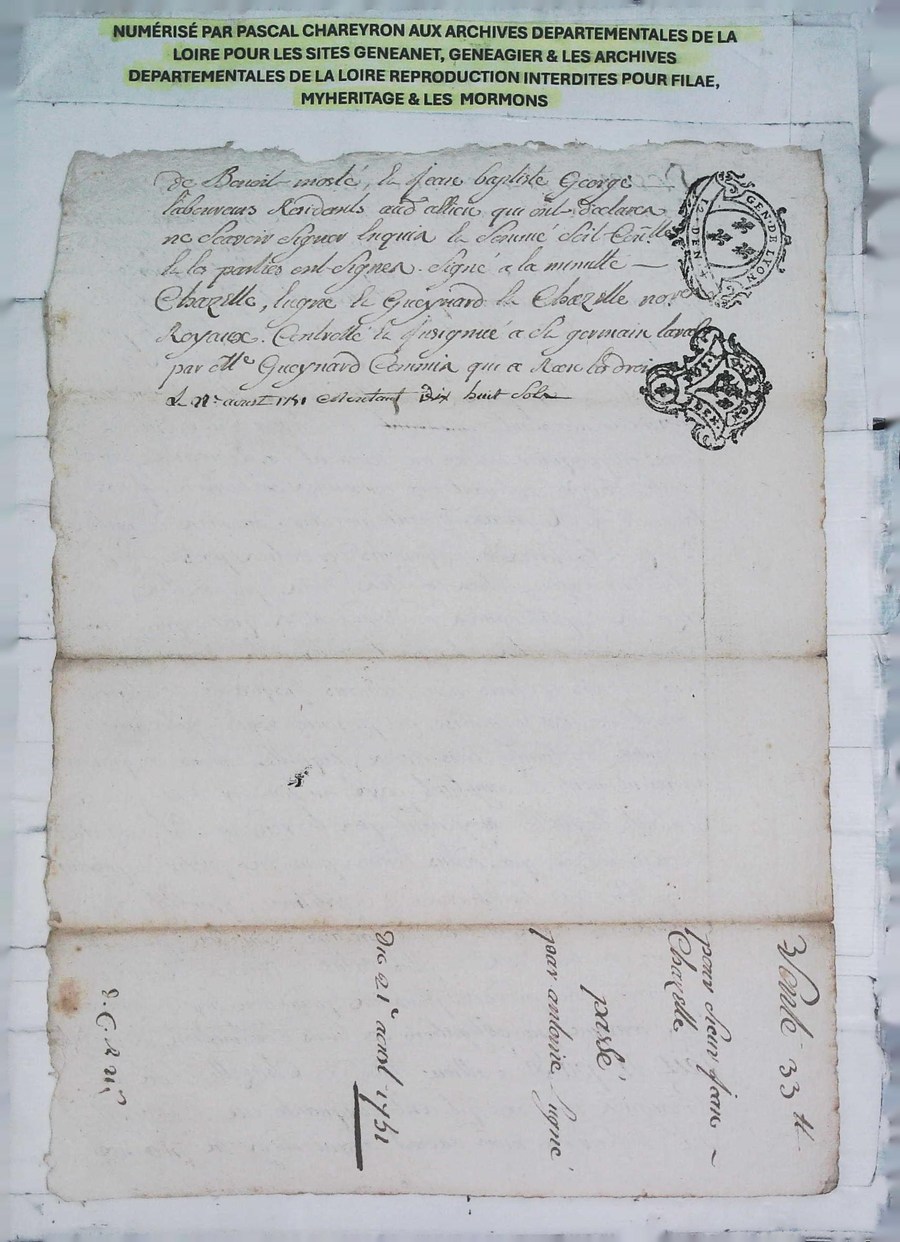 NUMÉRISÉ PAR PASCAL CHAREYRON AUX ARCHIVES DEPARTEMENTALES DE LA
LOIRE POUR LES SITES GENEANET, GENEAGIER & LES ARCHIVES
DEPARTEMENTALES DE LA LOIRE REPRODUCTION INTERDITES POUR FILAE,
MYHERITAGE & LES MORMONS
De Benoit mosté, Et Jean baptiste George
laboureurs Residants aud allieu qui ont Declarer
ne Scavoir Signer Enquis Et Sommé Soit
Et les parties ont Signer. Signé a la minutte
Chazelle, lugné Et Gueynard Et Chazelle no.res
Royaux. Controllé Et Insignué a St germain laval
par Me Gueynard Commis qui a Receu les droits
aoust 1751 Montant Dix huit Sols
GEN. DE LYON
Vente 33 #
pour Sieur Jean
Chazelle
passé
par antoine lugné
Du 21e aoust 1751